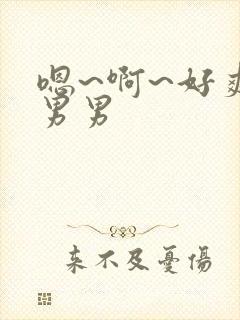 嗯~啊~好爽
男男
来不及憂傷